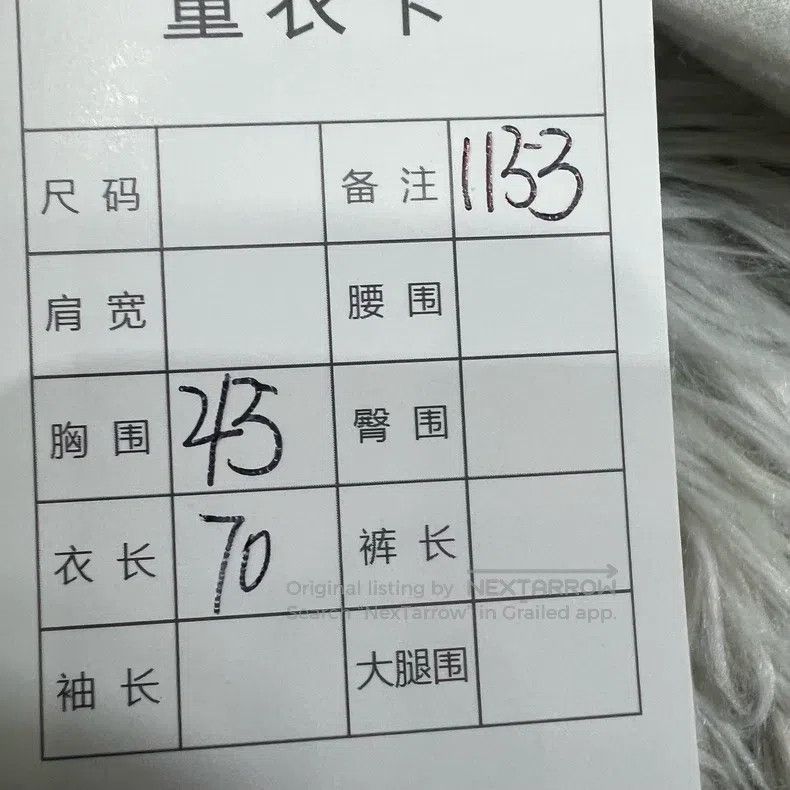 量衣卡
尺码 备注 1153
肩宽 腰围
胸围 43 臀围
衣长 70 裤长
Original listing by NEXTARROW
Search "NexTarrow" in Grailed app.
袖长 大腿围